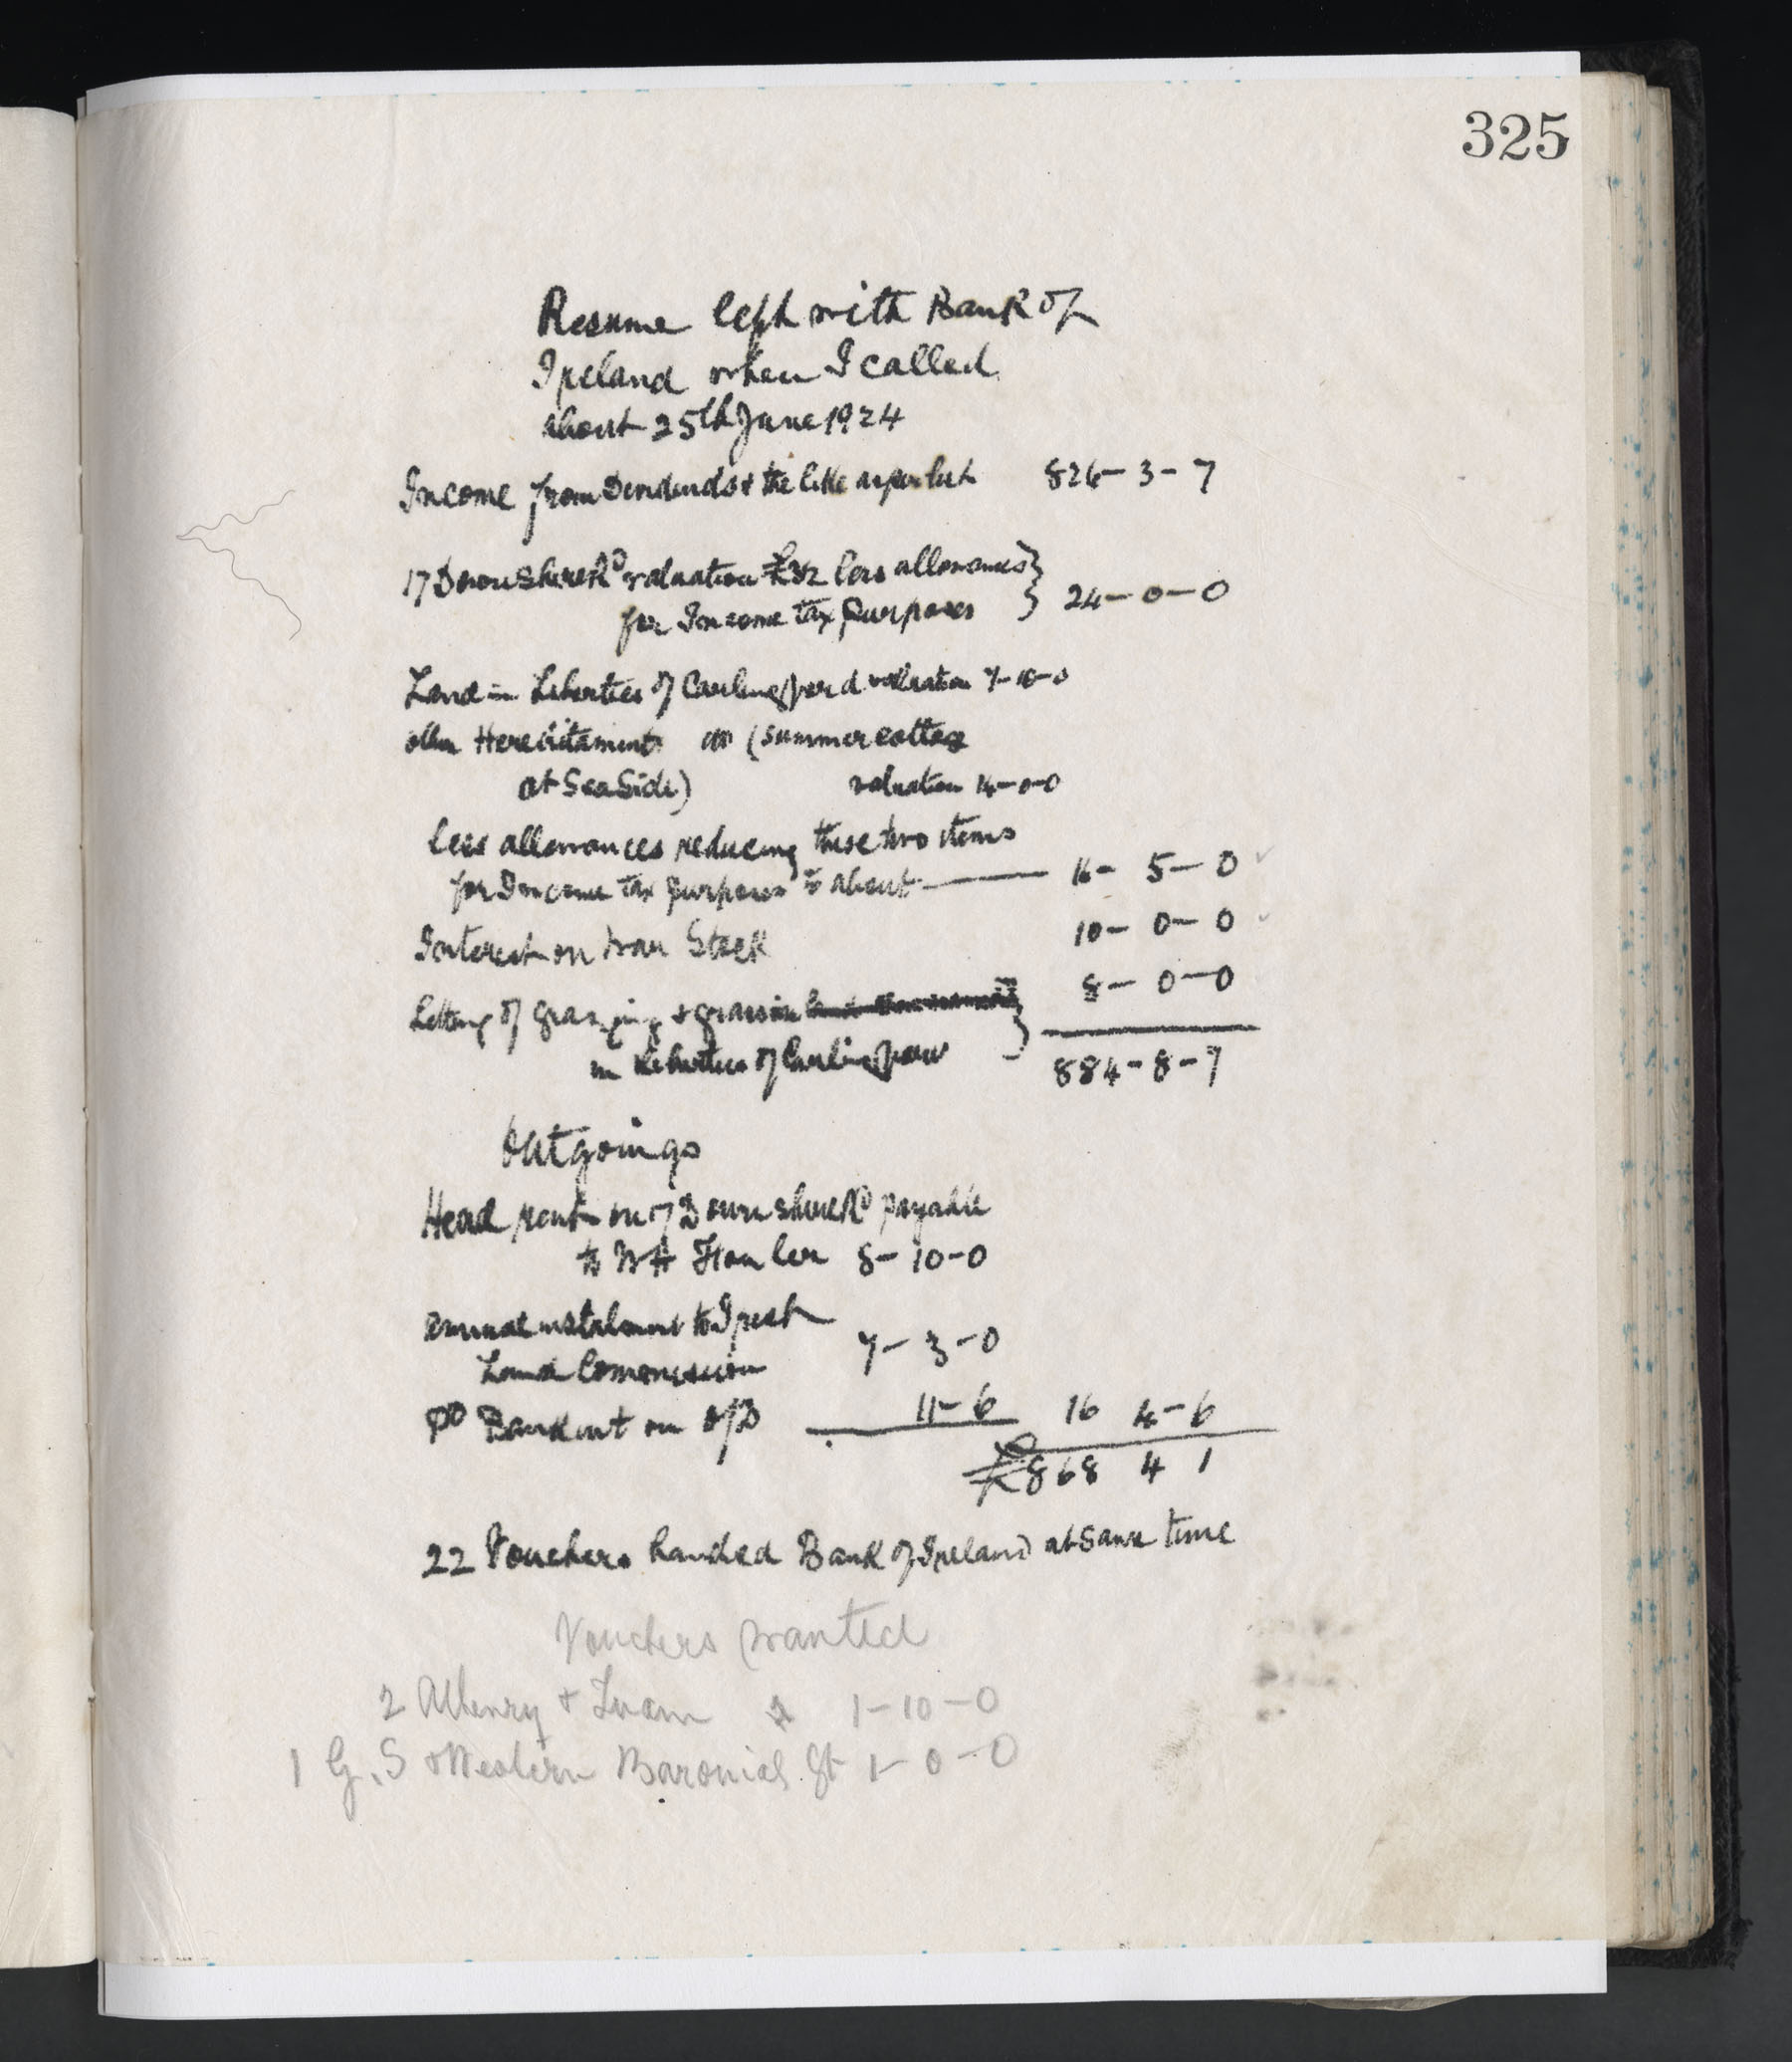 325
Resume left with Bank of
Ireland when I called
about 25th June 1924
Income from Dividends & the like as per list 826-3-7
17 Devonshire Rd valuation £32 less allowances
for Income tax purposes 24-0-0
Land in Liberties of Carlingford valuation 7-10-0
other Hereditaments do (summer cottage
at SeaSide) valuation 14-0-0
less allowances reducing these two items
for Income tax purposes to about 16-5-0
Interest on War Stock 10-0-0
Letting of grazing &
in Liberties of Carlingford 8-0-0
884-8-7
Outgoings
Head rent on 17 Devonshire Rd payable
to W H Fowler 8-10-0
Annual instalment to Irish
Land Commission 7-3-0
Do Bank int on O/D 11-6 16 4-6
£868 4 1
22 Vouchers handed Bank of Ireland at same time
Vouchers wanted
2 Athenry & Tuam 1-10-0
1 G. S & Western Baronial Gt 1-0-0